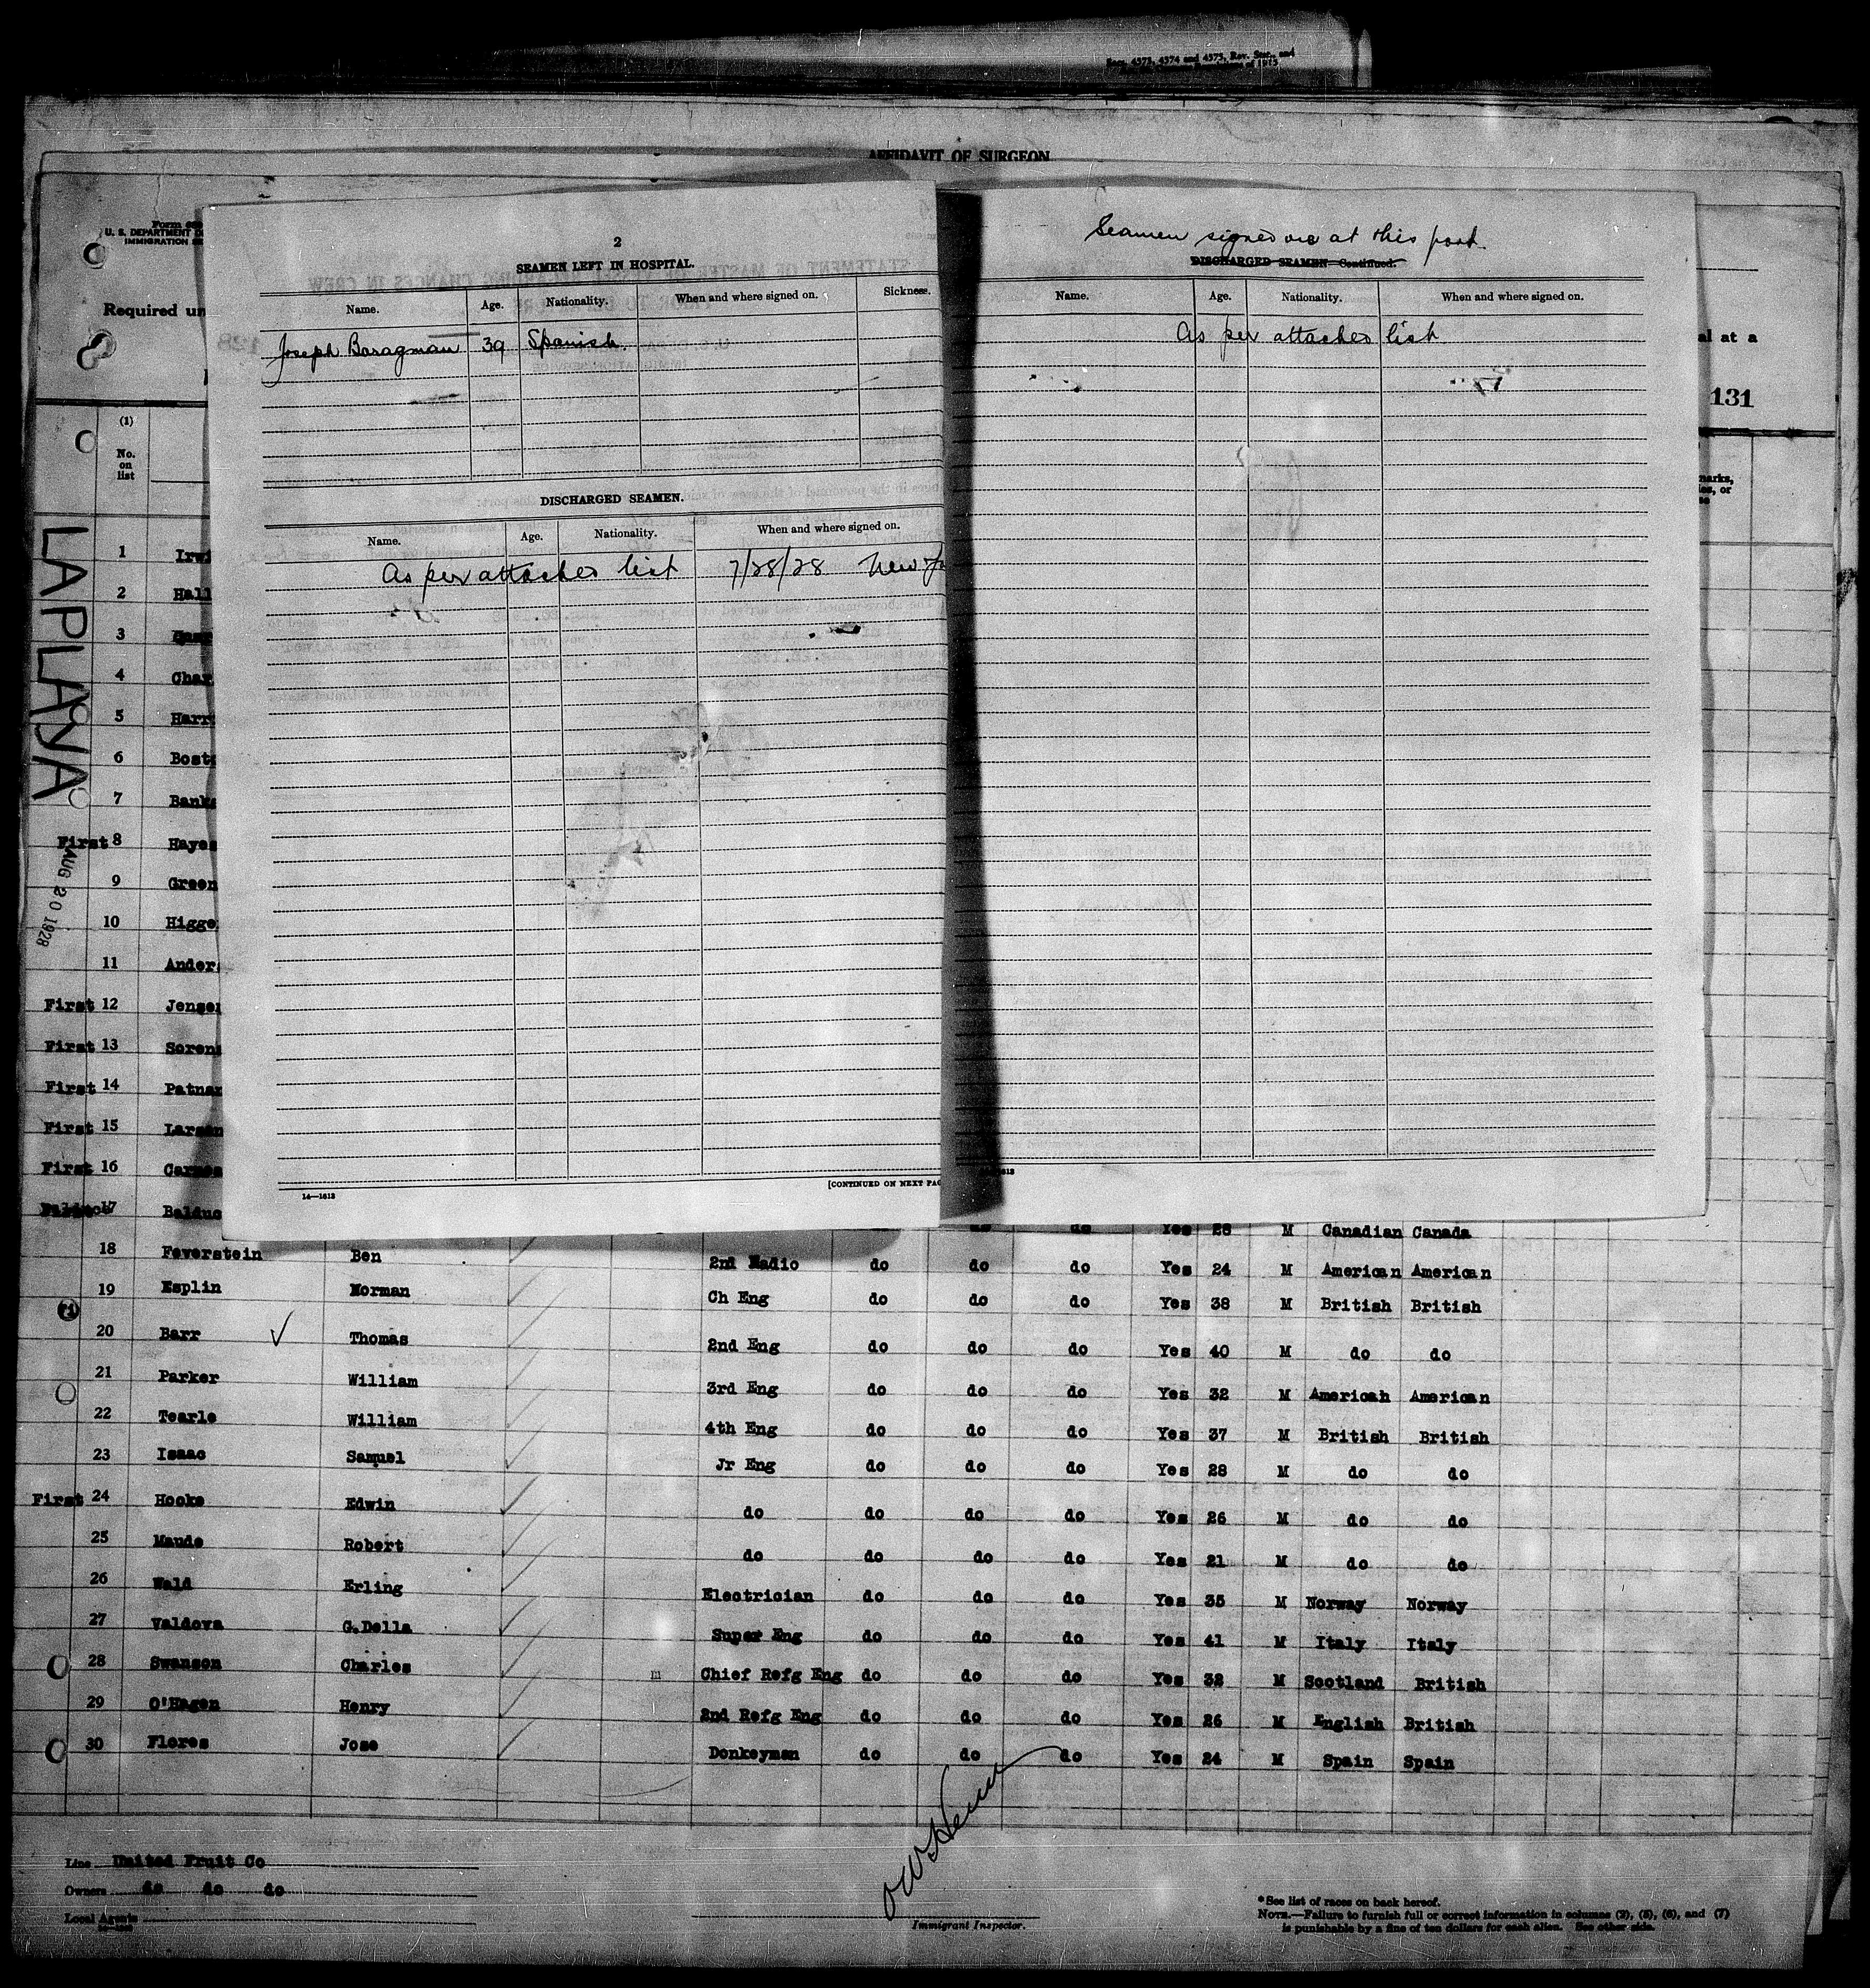 Secs. 4573, 4574 and 4575, Rev. Stat., and
of 1915
AFFIDAVIT OF SURGEON
Form
U. S. DEPARTMENT O
IMMIGRATION SE
Required un
al at a
131
(1)
No.
on
list
marks,
es, or
LAPLAYA
AUG 20 1928
2
SEAMEN LEFT IN HOSPITAL.
Name. Age. Nationality. When and where signed on. Sickness.
Joseph Baragman 39 Spanish.
DISCHARGED SEAMEN.
Name. Age. Nationality. When and where signed on.
As per attached list 7/28/28 New
14—1613
[CONTINUED ON NEXT PAG
Seamen signed on at this port.
DISCHARGED SEAMEN—Continued.
Name. Age. Nationality. When and where signed on.
As per attached list
1 Irwi
2 Hall
3
4 Char
5 Harr
6 Bost
7 Banks
First 8 Hayes
9 Green
10 Higge
11 Anders
First 12 Jensen
First 13 Soren
First 14 Patna
First 15 Larsen
First 16
17 Balduc Yes 28 M Canadian Canada
18 Feverstein Ben 2nd Radio do do do Yes 24 M American American
19 Esplin Norman Ch Eng do do do Yes 38 M British British
20 Barr Thomas 2nd Eng do do do Yes 40 M do do
21 Parker William 3rd Eng do do do Yes 32 M American American
22 Tearle William 4th Eng do do do Yes 37 M British British
23 Isaac Samuel Jr Eng do do do Yes 28 M do do
First 24 Hooke Edwin do do do do Yes 26 M do do
25 Maude Robert do do do do Yes 21 M do do
26 Wald Erling Electrician do do do Yes 35 M Norway Norway
27 Valdova G.Della Super Eng do do do Yes 41 M Italy Italy
28 Swanson Charles Chief Refg Eng do do do Yes 32 M Scotland British
29 O'Hagen Henry 2nd Refg Eng do do do Yes 26 M English British
30 Flores Jose Donkeyman do do do Yes 24 M Spain Spain
Line United Fruit Co
Owners do do do
Local Agents
Immigrant Inspector.
*See list of races on back hereof.
NOTE.—Failure to furnish full or correct information in columns (2), (5), (6), and (7)
is punishable by a fine of ten dollars for each alien. See other side.